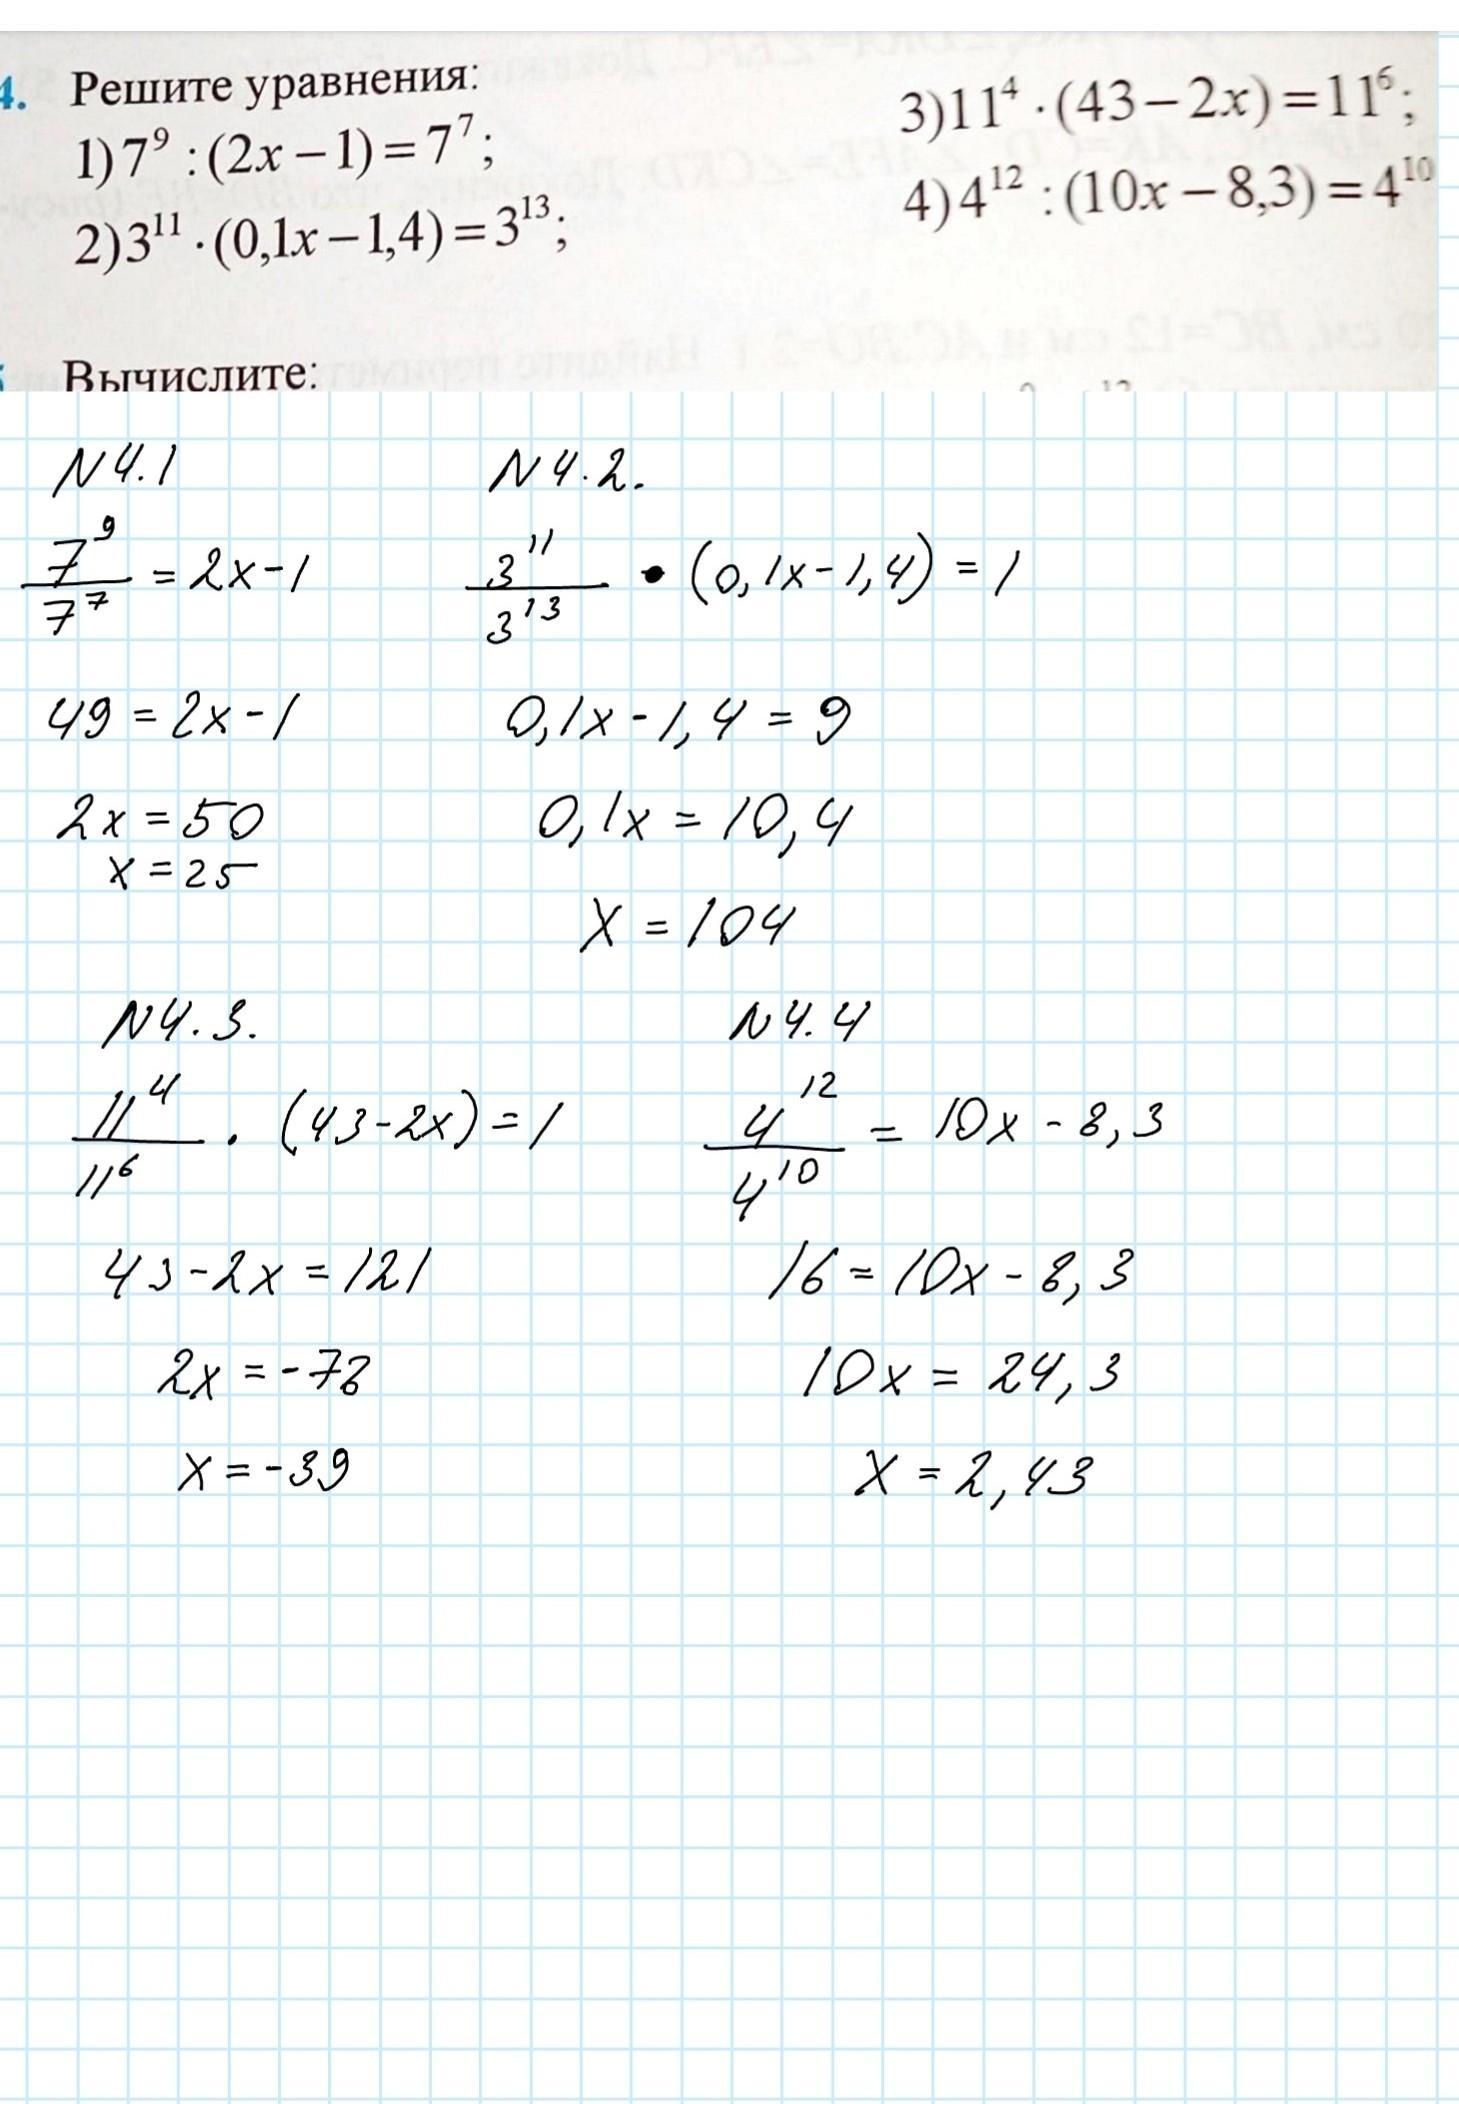 4. Решите уравнения:
1) 7⁹ : (2x − 1) = 7⁷;
2) 3¹¹ · (0,1x − 1,4) = 3¹³;
3) 11⁴ · (43 − 2x) = 11⁶;
4) 4¹² : (10x − 8,3) = 4¹⁰
Вычислите:
N4.1
7⁹/7⁷ = 2x − 1
49 = 2x − 1
2x = 50
x = 25
N4.2.
3¹¹/3¹³ · (0,1x − 1,4) = 1
0,1x − 1,4 = 9
0,1x = 10,4
x = 104
N4.3.
11⁴/11⁶ · (43 − 2x) = 1
43 − 2x = 121
2x = −78
x = −39
N4.4
4¹²/4¹⁰ = 10x − 8,3
16 = 10x − 8,3
10x = 24,3
x = 2,43